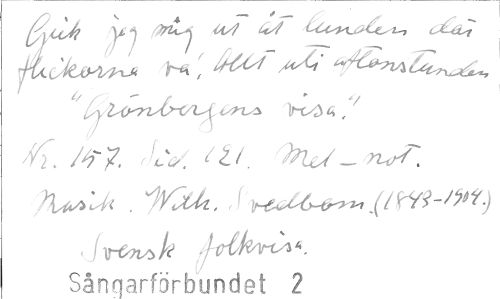 Gick jag mig ut åt lunden där
flickorna va', Allt uti aftonstunden
"Grönbergens visa."
Nr. 157. Sid. 121. Mel-not.
Musik. Wilh. Svedbom. (1843-1904.)
Svensk folkvisa.
Sångarförbundet 2